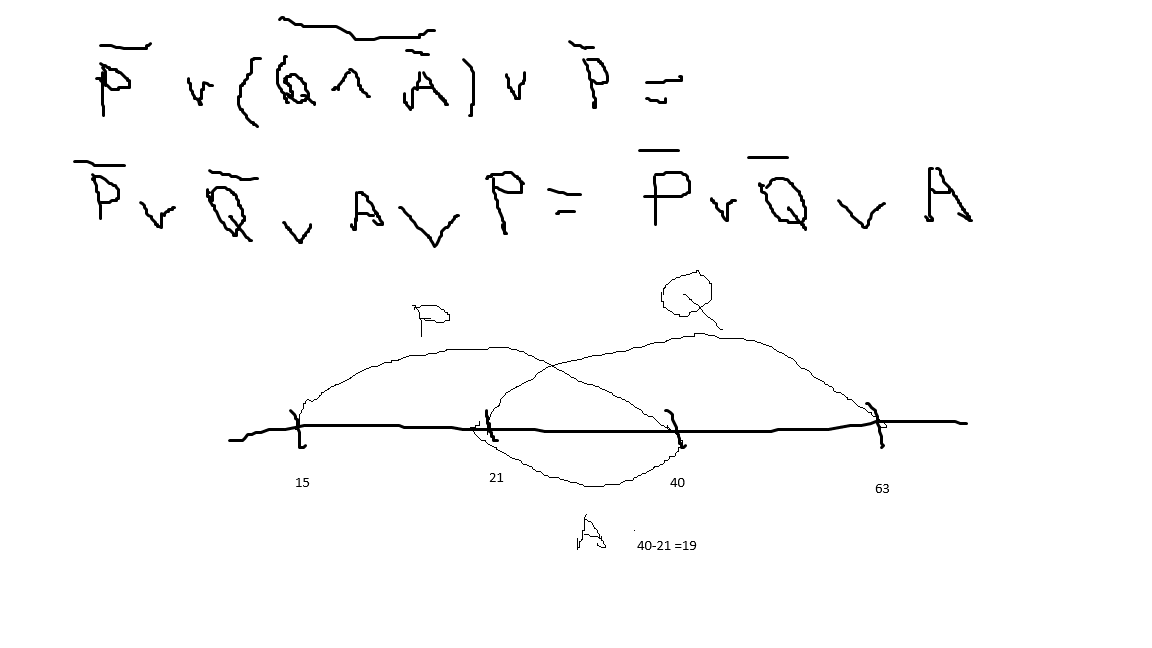 P̅ v (Q ∧ A̅)̅ v P̅ =
P̅ v Q̅ v A v P = P̅ v Q̅ v A
P Q
15 21 40 63
A 40-21 =19